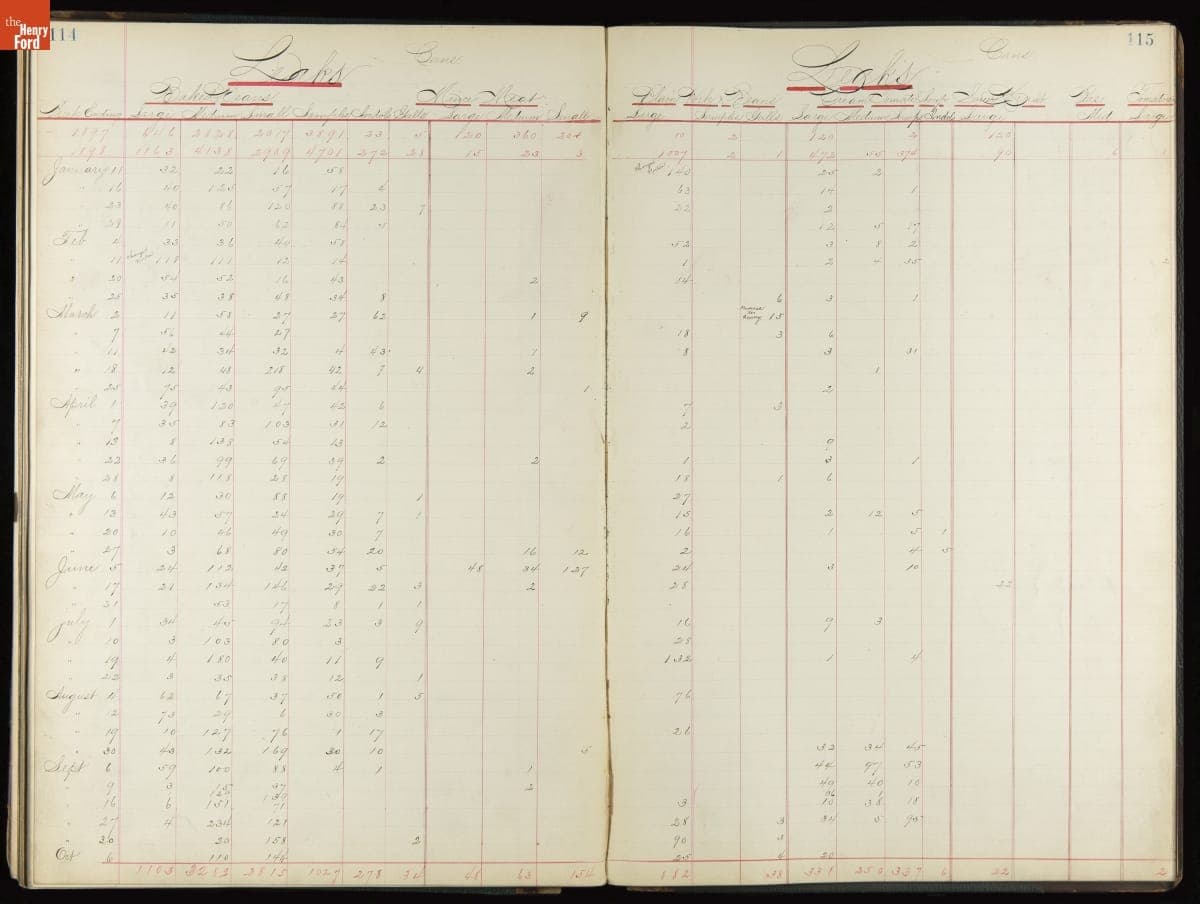 the Henry Ford
114
Leaks Cans
Baked Beans Mince Meat
Week Ending Large Medium Small Sampler Galls Large Medium Small
1197 446 2828 2017 3891 33 5 120 360 204
1198 1163 4138 2909 4701 272 28 15 23 3
January 11 32 22 16 58
" 16 40 125 57 17 4
" 23 40 86 120 88 23 7
" 29 11 50 62 84 5
Feb 4 33 36 40 58
" 11 118 111 12 14
" 20 84 52 16 43 2
" 25 35 38 48 34 8
March 2 11 58 27 27 62 1 9
" 7 56 44 27
" 11 42 34 32 4 43 7
" 18 12 48 218 42 7 4 2
" 25 75 43 95 44 1
April 1 39 120 47 42 6
" 7 35 83 103 31 12
" 13 8 138 54 13
" 22 36 99 69 39 2 2
" 28 8 118 28 19
May 6 12 30 88 19 1
" 13 43 57 24 29 7 1
" 20 10 46 49 30 7
" 27 3 68 80 34 20 16 12
June 5 24 112 42 37 5 48 34 127
" 17 21 134 146 29 22 3 2
" 21 53 17 8 1 1
July 1 34 45 94 23 3 9
" 10 3 103 80 3
" 19 4 180 40 11 9
" 22 3 35 38 12 1
August 4 62 67 37 50 1 5
" 12 73 29 6 30 3
" 19 10 127 76 1 17
" 30 43 132 169 30 10 5
Sept 6 59 100 88 4 1 1
" 9 3 37 2
" 16 6 151 71
" 27 4 234 121
" 30 20 158 2
Oct 6 110 144
1103 3283 2815 1027 278 34 48 63 154
115
Leaks Cans
Plain Beans Cream Tomato
Large Sampler Galls Large Medium Large Med Large
10 2 120 2 120
1007 2 1 472 55 374 90 6
140 25 2
63 14 1
22 2
12 5 17
52 3 8 2
1 2 4 35 2
14
6 3 1
15
18 3 6
8 3 31
1
2
7 3
2
9
1 3 1
18 1 6
27
15 2 12 5
16 1 5 1
2 4 5
24 3 10
28 22
16 9 3
28
132 1 4
76
26
32 34 45
44 97 53
49 40 10
3 10 38 18
28 3 34 5 95
90 3
25 4 20
882 38 331 250 337 6 22 2